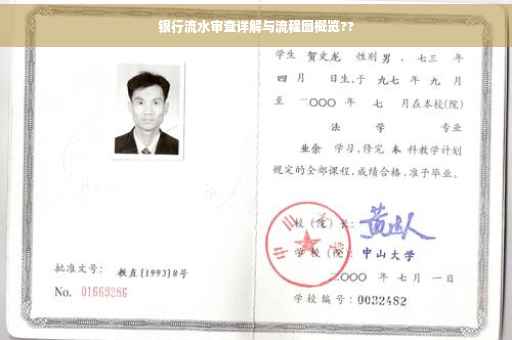 银行流水审查详解与流程图概览??
学生 贺文龙 性别 男 、七三 年
四 月 日生,于 九七 年 九 月
至 二〇〇〇 年 七 月在本校(院)
法 学 专业
业余 学习,修完 本 科教学计划
规定的全部课程,成绩合格,准予毕业。
校 (院) 长:
学 校 (院): 中山大学
二〇〇〇 年 七 月 一 日
批准文号: 教直[1993]8号
No. 01669286
学校编号: 0032482